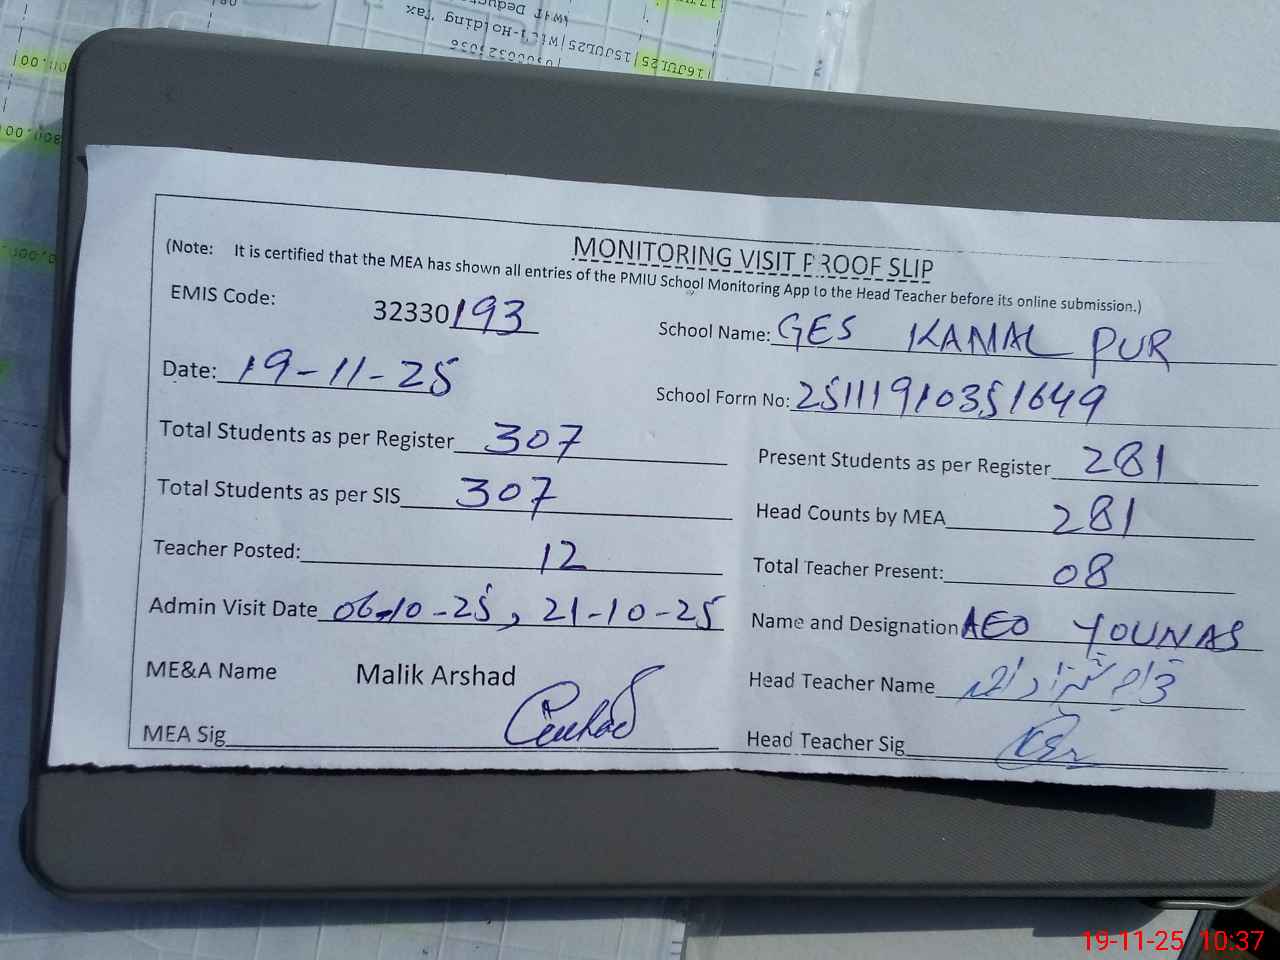 16JUL25
15JUL25 With-Holding Tax
MONITORING VISIT PROOF SLIP
(Note: It is certified that the MEA has shown all entries of the PMIU School Monitoring App to the Head Teacher before its online submission.)
EMIS Code: 32330193
School Name: GES KAMAL PUR
Date: 19-11-25
School Form No: 25111910351649
Total Students as per Register 307
Present Students as per Register 281
Total Students as per SIS 307
Head Counts by MEA 281
Teacher Posted: 12
Total Teacher Present: 08
Admin Visit Date 06-10-25, 21-10-25
Name and Designation AEO YOUNAS
ME&A Name Malik Arshad
Head Teacher Name
MEA Sig
Head Teacher Sig
19-11-25 10:37